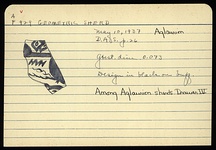 A
P 929 GEOMETRIC SHERD
May 10, 1937 Aglaurion
Grtst. dim. 0.073
Design in black on buff
Among Aglaurion sherds Drawer IV